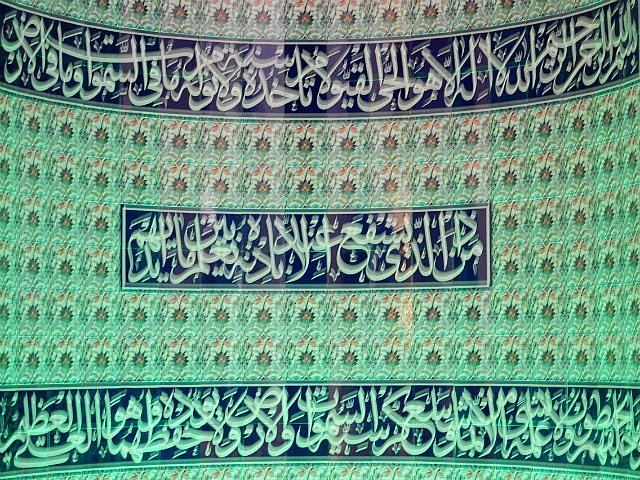 بسم الله الرحمن الرحيم الله لا إله إلا هو الحي القيوم لا تأخذه سنة ولا نوم له ما في السموات وما في الأرض
من ذا الذي يشفع عنده إلا بإذنه يعلم ما بين أيديهم
وما خلفهم ولا يحيطون بشيء من علمه إلا بما شاء وسع كرسيه السموات والأرض ولا يؤده حفظهما وهو العلي العظيم